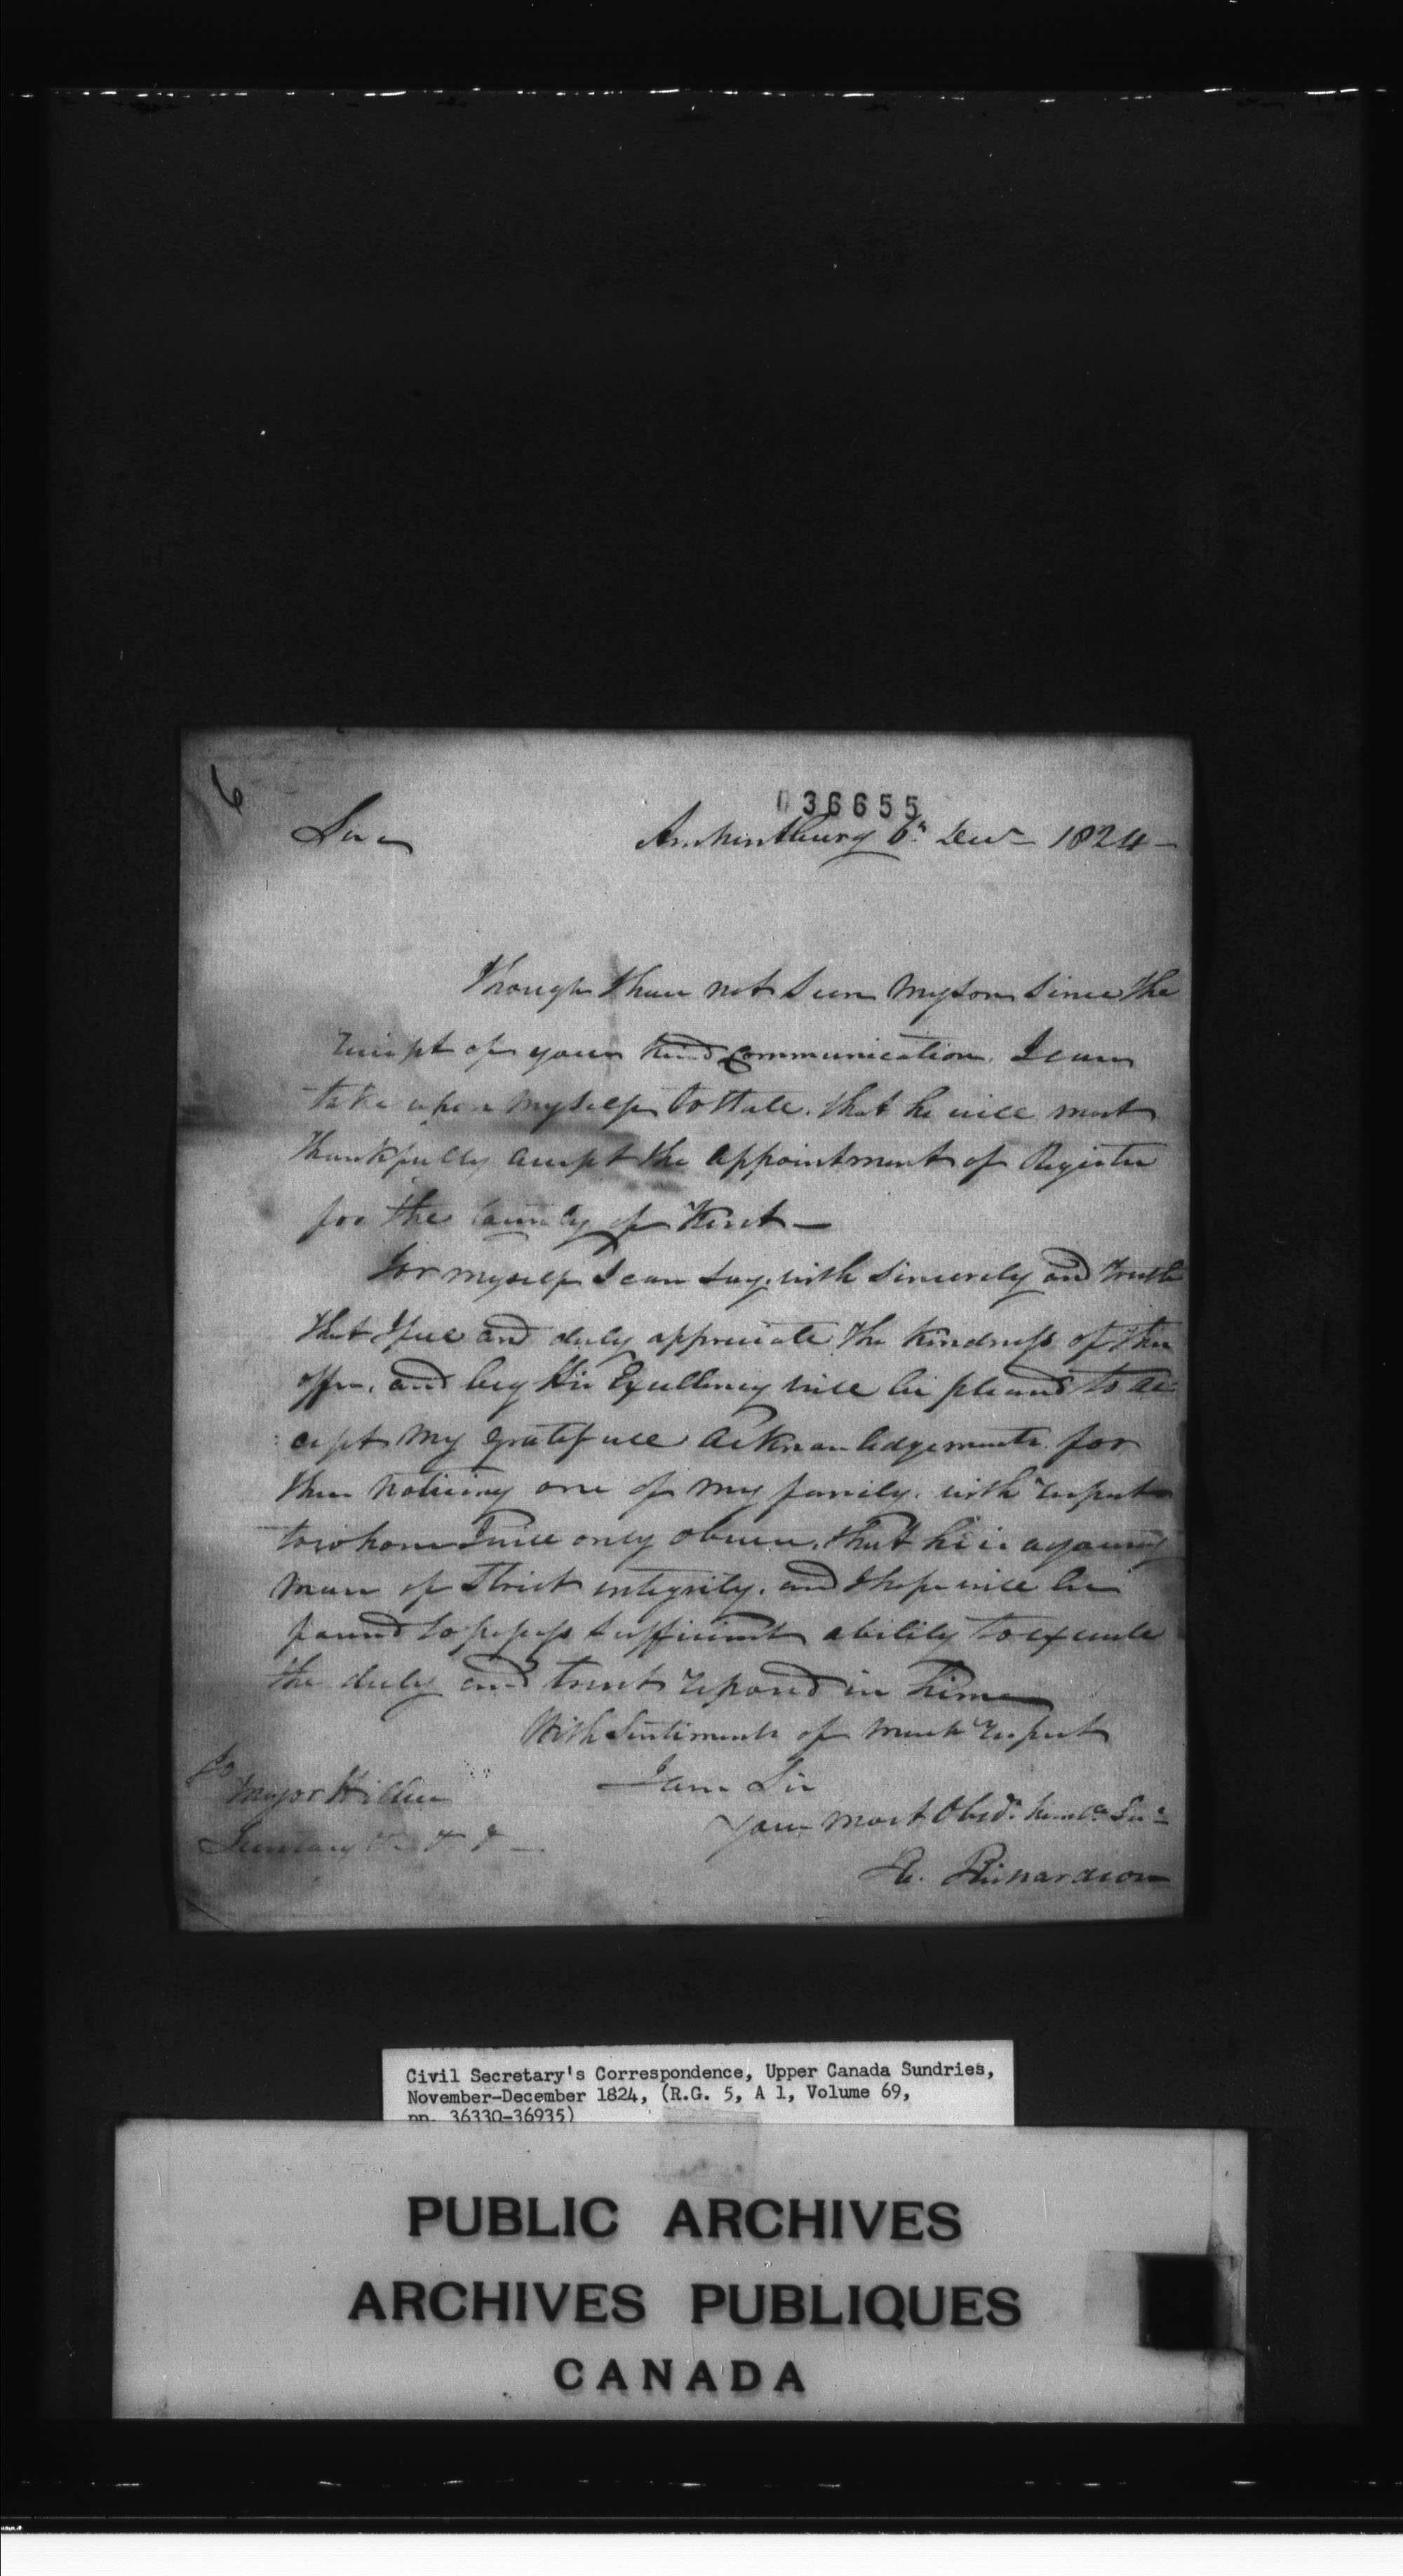 6
036655
Sir Amherstburg 6th Decr 1824
Though I have not seen my son since the
receipt of your kind communication, I can
take upon myself to state, that he will most
thankfully accept the appointment of Register
for the County of Kent —
For myself I can say, with sincerity and truth
that I feel and duly appreciate the kindness of this
offer, and beg His Excellency will be pleased to ac=
:cept my gratefull acknowledgements for
thus noticing one of my family, with respect
to whom I will only observe, that he is a young
man of strict integrity, and I hope will be
found to possess sufficient ability to execute
the duty and trust reposed in him
With sentiments of much respect
I am Sir
Your most Obedt. humle Sert
R. Richardson
To
Major Hillier
Secretary &c & &
Civil Secretary's Correspondence, Upper Canada Sundries,
November-December 1824, (R.G. 5, A 1, Volume 69,
pp. 36330-36935)
PUBLIC ARCHIVES
ARCHIVES PUBLIQUES
CANADA